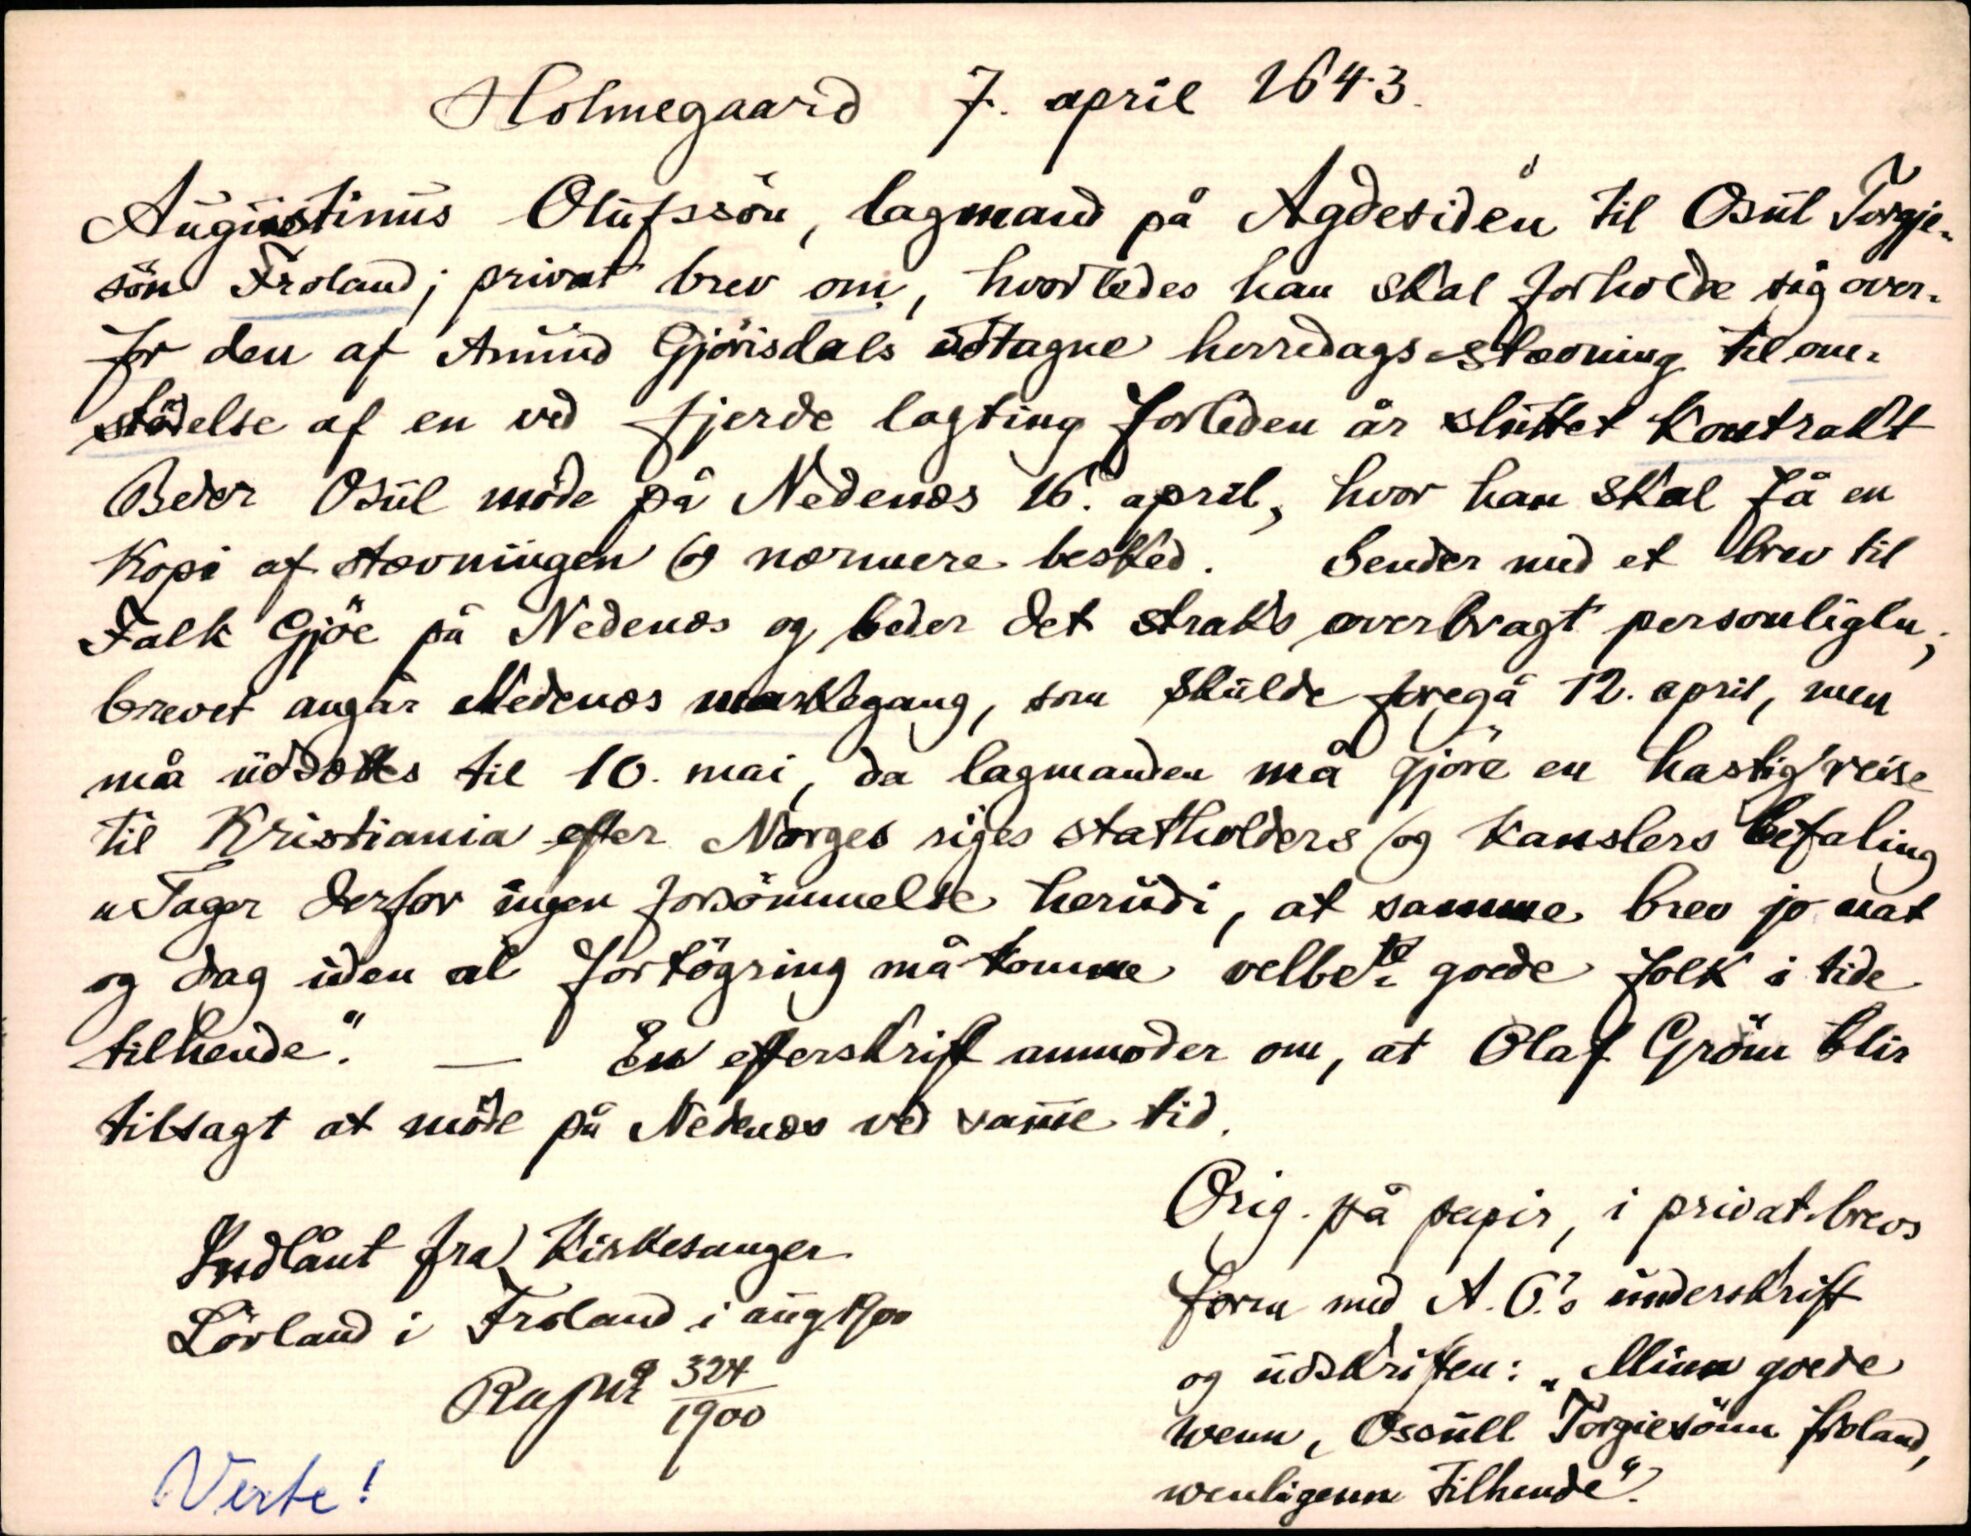 Holmegaard 7. april 1643.
Augustinus Olufssön, lagmand på Agdesiden til Osul Torgje-
sön Froland; privat brev om, hvorledes han skal forholde sig over-
for den af Amund Gjörisdals udtagne herredags-stævning til om-
stödelse af en ved fjerde lagting forleden år sluttet kontrakt
Beder Osul möde på Nedenæs 16. april, hvor han skal få en
kopi af stævningen og nærmere besked. Sender med et brev til
Falk Gjöe på Nedenæs og beder det straks overbragt personligln;
brevet angår Nedenæs markegang, som skulde foregå 12. april, men
må udsættes til 10. mai, da lagmanden må gjöre en hastig reise
til Kristiania efter Norges riges statholders og kanslers befaling
„Tager derfor ingen forsömmelse herudi, at samme brev jo nat
og dag uden al fortögring må komme velbetᵉ goede folk i tide
tilhende". — En efterskrift anmoder om, at Olaf Gröm blir
tilsagt at möde på Nedenæs ved sam̅e tid.
Indlånt fra kirkesanger
Lövland i Froland i aug. 1900
Ra jnr 324/1900
Verte!
Orig. på papir, i privat-brevs
form med A. O.'s underskrift
og udskriften: „Minn goede
wenn, Ossull Torgiesönn froland,
wenligenn tilhende".